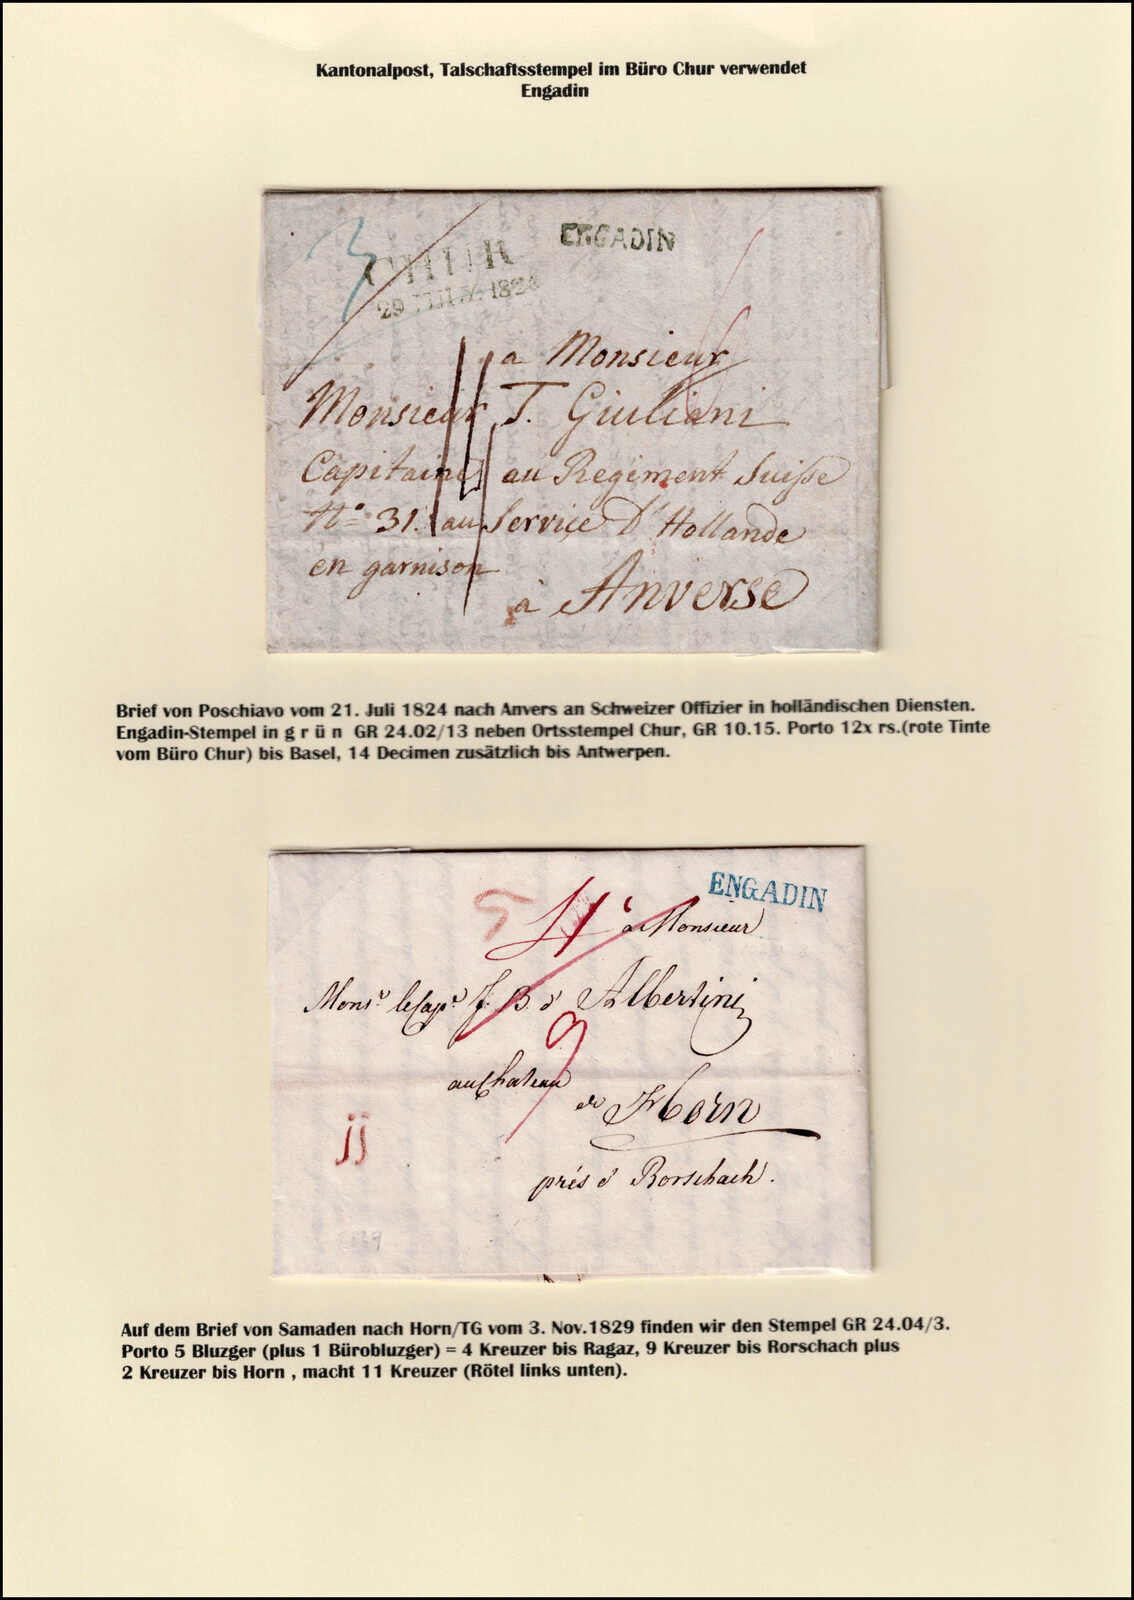 Kantonalpost, Talschaftsstempel im Büro Chur verwendet
Engadin
ENGADIN
CHUR
29 JULY. 1824
a Monsieur
Monsieur T. Giuliani
Capitaine au Regiment Suisse
No 31. au Service D'Hollande
en garnison
à Anverse
Brief von Poschiavo vom 21. Juli 1824 nach Anvers an Schweizer Offizier in holländischen Diensten.
Engadin-Stempel in g r ü n GR 24.02/13 neben Ortsstempel Chur, GR 10.15. Porto 12x rs.(rote Tinte
vom Büro Chur) bis Basel, 14 Decimen zusätzlich bis Antwerpen.
ENGADIN
5
à Monsieur
Monsr. le Cape. J. B. d' Albertini
9
au Chateau
de Horn
jj
prés d' Rorschach.
Auf dem Brief von Samaden nach Horn/TG vom 3. Nov.1829 finden wir den Stempel GR 24.04/3.
Porto 5 Bluzger (plus 1 Bürobluzger) = 4 Kreuzer bis Ragaz, 9 Kreuzer bis Rorschach plus
2 Kreuzer bis Horn , macht 11 Kreuzer (Rötel links unten).